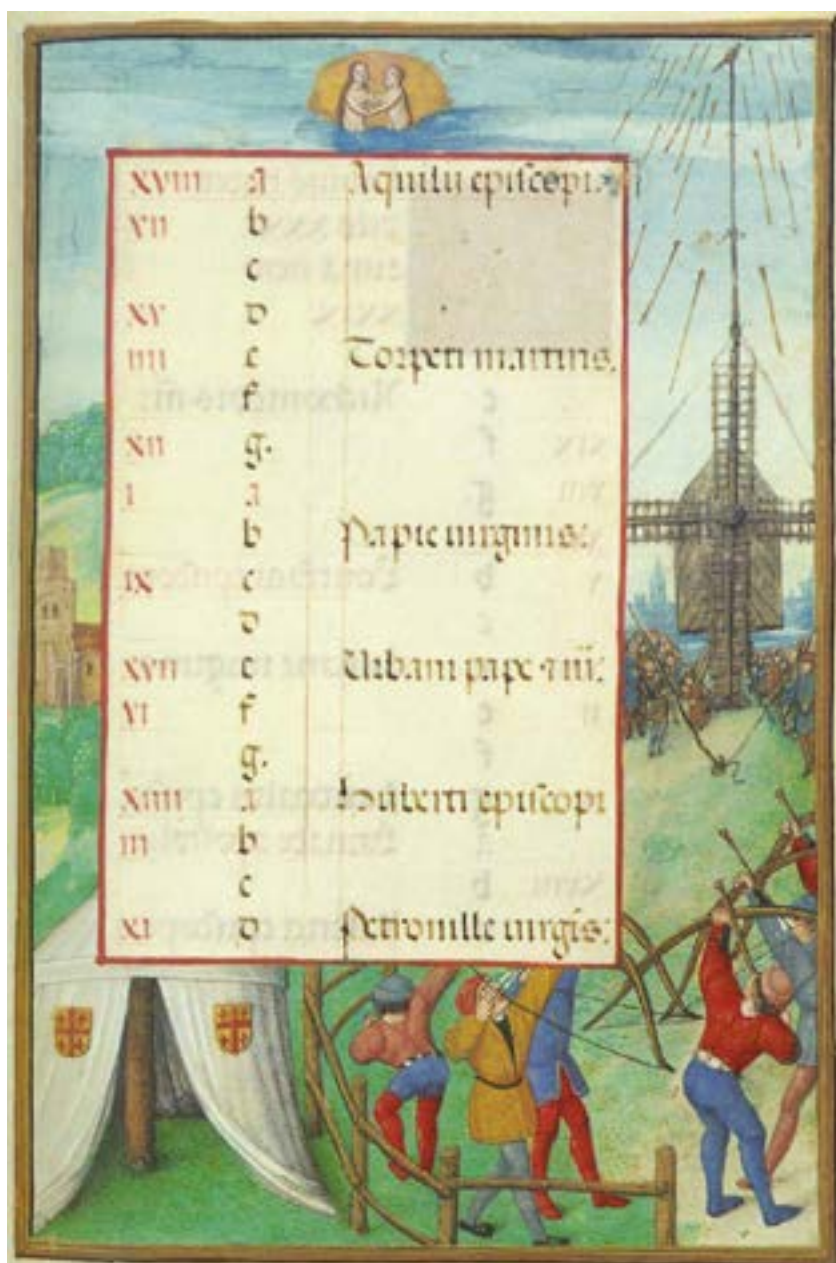 xviii a Aquilii episcopi.
vii b
c
xv d
iiii e Torpeti martiris.
f
xii g.
i a
b Papie uirginis:
ix c
d
xvii e Urbani pape · iiii:
vi f
g.
xiiii a huberti episcopi
iii b
c
xi d Petronille uirgis: